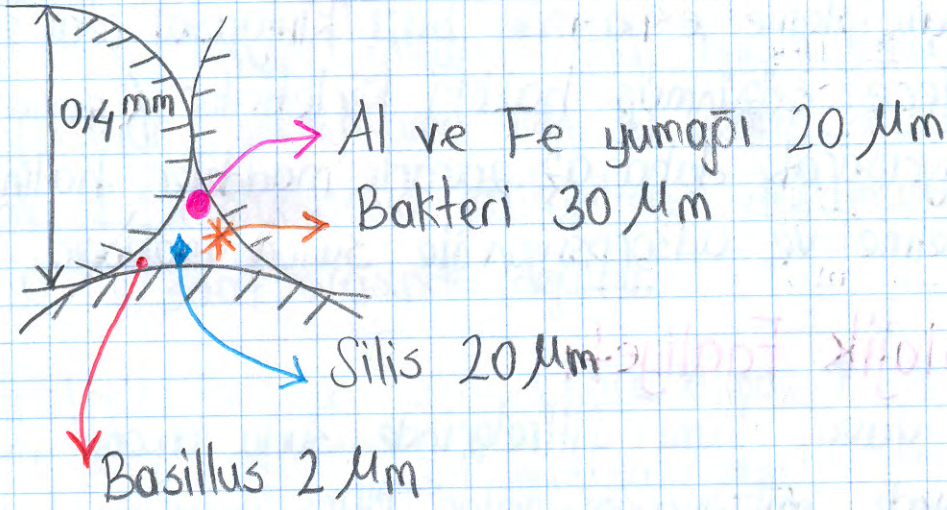 0,4 mm
Al ve Fe yumağı 20 Mm
Bakteri 30 Mm
Silis 20 Mm
Basillus 2 Mm